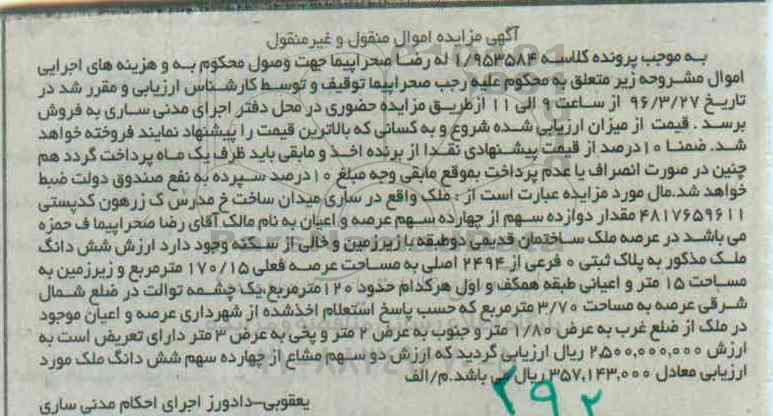 آگهی مزایده اموال منقول و غیرمنقول
به موجب پرونده کلاسه ۱/۹۵۳۵۸۴ له رضا صحراپیما جهت وصول محکوم به و هزینه های اجرایی
اموال مشروحه زیر متعلق به محکوم علیه رجب صحراپیما توقیف و توسط کارشناس ارزیابی و مقرر شد در
تاریخ ۹۶/۳/۲۷ از ساعت ۹ الی ۱۱ ازطریق مزایده حضوری در محل دفتر اجرای مدنی ساری به فروش
برسد . قیمت از میزان ارزیابی شده شروع و به کسانی که بالاترین قیمت را پیشنهاد نمایند فروخته خواهد
شد. ضمنا ۱۰درصد از قیمت پیشنهادی نقدا از برنده اخذ و مابقی باید ظرف یک ماه پرداخت گردد هم
چنین در صورت انصراف یا عدم پرداخت بموقع مابقی وجه مبلغ ۱۰درصد سپرده به نفع صندوق دولت ضبط
خواهد شد.مال مورد مزایده عبارت است از : ملک واقع در ساری میدان ساخت خ مدرس ک زرهون کدپستی
۴۸۱۷۶۵۹۶۱۱ مقدار دوازده سهم از چهارده سهم عرصه و اعیان به نام مالک آقای رضا صحراپیما ف حمزه
می باشد در عرصه ملک ساختمان قدیمی دوطبقه با زیرزمین و خالی از سکنه وجود دارد ارزش شش دانگ
ملک مذکور به پلاک ثبتی ۰ فرعی از ۲۴۹۴ اصلی به مساحت عرصه فعلی ۱۷۰/۱۵ مترمربع و زیرزمین به
مساحت ۱۵ متر و اعیانی طبقه همکف و اول هرکدام حدود ۱۲۰مترمربع،یک چشمه توالت در ضلع شمال
شرقی عرصه به مساحت ۳/۷۰ مترمربع که حسب پاسخ استعلام اخذشده از شهرداری عرصه و اعیان موجود
در ملک از ضلع غرب به عرض ۱/۸۰ متر و جنوب به عرض ۲ متر و پخی به عرض ۳ متر دارای تعریض است به
ارزش ۲,۵۰۰,۰۰۰,۰۰۰ ریال ارزیابی گردید که ارزش دو سهم مشاع از چهارده سهم شش دانگ ملک مورد
ارزیابی معادل ۳۵۷,۱۴۳,۰۰۰ ریال می باشد.م/الف
یعقوبی-دادورز اجرای احکام مدنی ساری